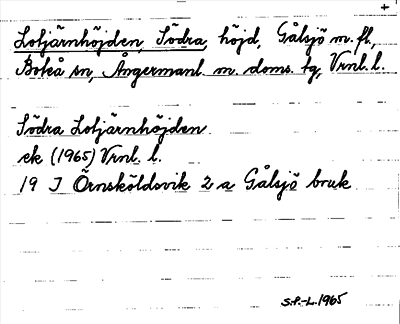 +
Lotjärnhöjden, Södra, höjd, Gålsjö m. fl.,
Boteå sn, Ångermanl. m. doms. tg, Vrnl. l.
Södra Lotjärnhöjden
ek (1965) Vrnl. l.
19 J Örnsköldsvik 2 a Gålsjö bruk
S.P.-L. 1965